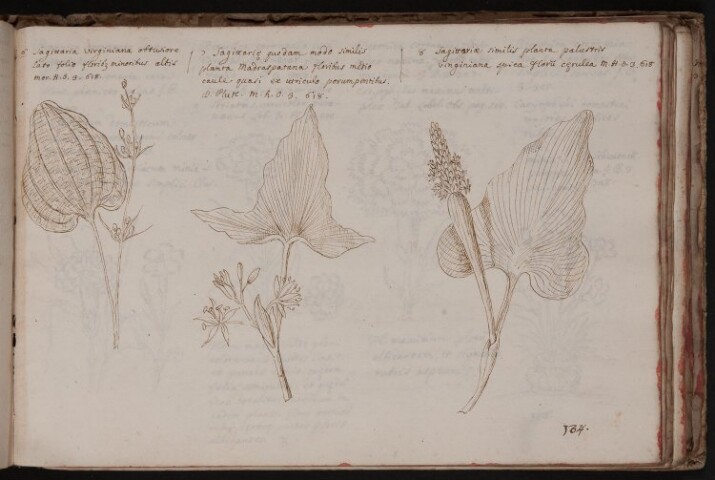 6 Sagittaria virginiana obtusiore
lato folio floribus minoribus albis
mor. H. O. 3. 618
7 Sagittariæ quodam modo similis
planta Madraspatana floribus medio
caule quasi ex utriculo prorumpentibus.
D. Pluk. M. H. O. 3. 618.
8 Sagittariæ similis planta palustris
virginiana spica florum cærulea M. H. O. 3. 618
584.